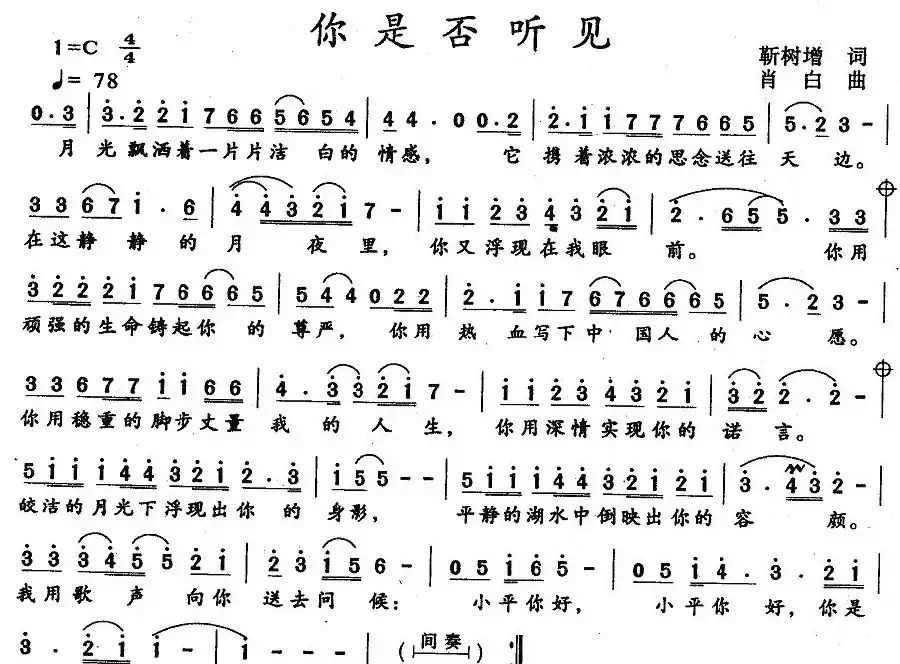 你是否听见
1=C 4/4
♩= 78
靳树增 词
肖白 曲
0.3 3.2 2 1 7 6 6 5 6 5 4 4 4 . 0 0.2 2.1 1 7 7 7 6 6 5 5.2 3 –
月光飘洒着一片片洁 白的情感， 它携着浓浓的思念送往天 边。
3 3 6 7 1 . 6 4 4 3 2 1 7 – 1 1 2 3 4 3 2 1 2 . 6 5 5. 3 3
在这静 静的月 夜里， 你又浮现在我眼 前。 你用
3 2 2 2 1 7 6 6 6 6 5 5 4 4 0 2 2 2 . 1 1 7 6 7 6 6 6 5 5 . 2 3 –
顽强的生命铸起你 的尊严， 你用热 血写下中 国人 的心 愿。
3 3 6 7 7 1 1 6 6 4 . 3 3 2 1 7 – 1 1 2 3 4 3 2 1 3 2 2 . 2 –
你用稳重的脚步丈量 我 的人 生， 你用深情实现你的诺 言。
5 1 1 1 4 4 3 2 1 2 . 3 1 5 5 – 5 1 1 1 4 4 3 2 1 2 1 3 . 4 3 2 –
皎洁的月光下浮现出你 的身影， 平静的湖水中倒映出你的容 颜。
3 3 3 4 5 5 2 1 2 3 1 5 6 – 0 5 1 6 5 – 0 5 1 4 . 3 . 2 1
我用歌 声 向你 送去问 候： 小平你好， 小平你 好，你是
3 . 2 1 1 – 1 – – – （间奏）